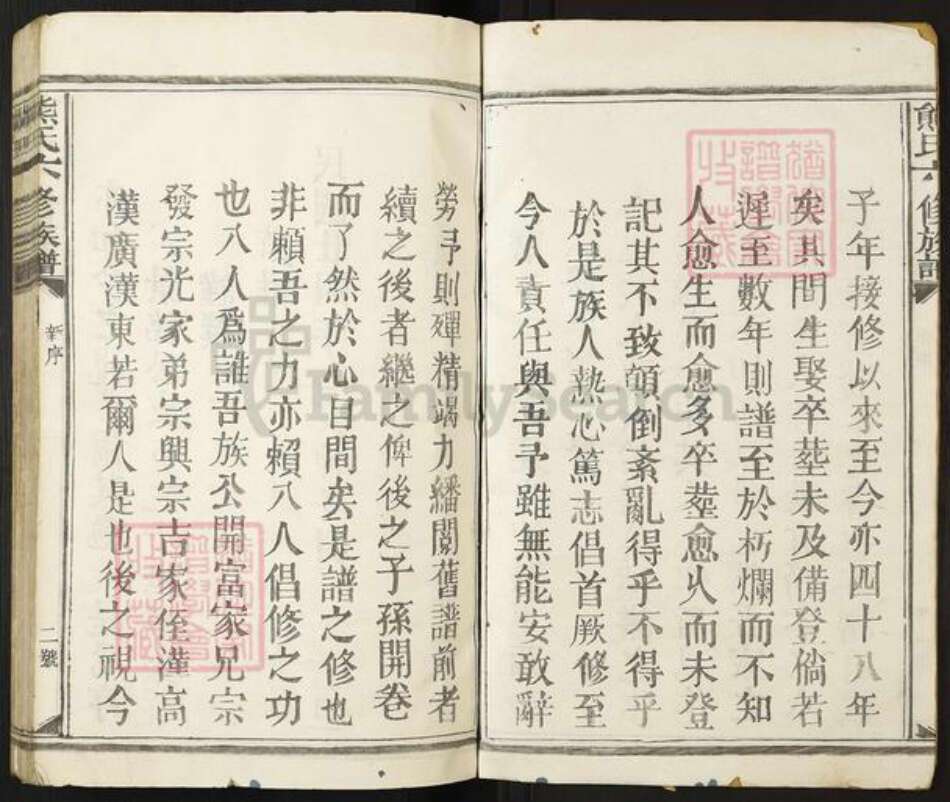 子年接修以來至今亦四十八年
矣其間生娶卒塟未及備登倘若
遲至數年則譜至於朽爛而不知
人愈生而愈多卒塟愈乆而未登
記其不致顛倒紊亂得乎不得乎
於是族人熱心篤志倡首厥修至
今人責任與吾予雖無能安敢辭
勞予則殫精竭力繙閱舊譜前者
續之後者繼之俾後之子孫開卷
而了然於心目間矣是譜之修也
非賴吾之力亦賴八人倡修之功
也八人爲誰吾族公開富家兄宗
發宗光家弟宗興宗吉家侄漢高
漢廣漢東若爾人是也後之視今
熊氏六修族譜
新序
二號
熊氏六修族譜
FamilySearch